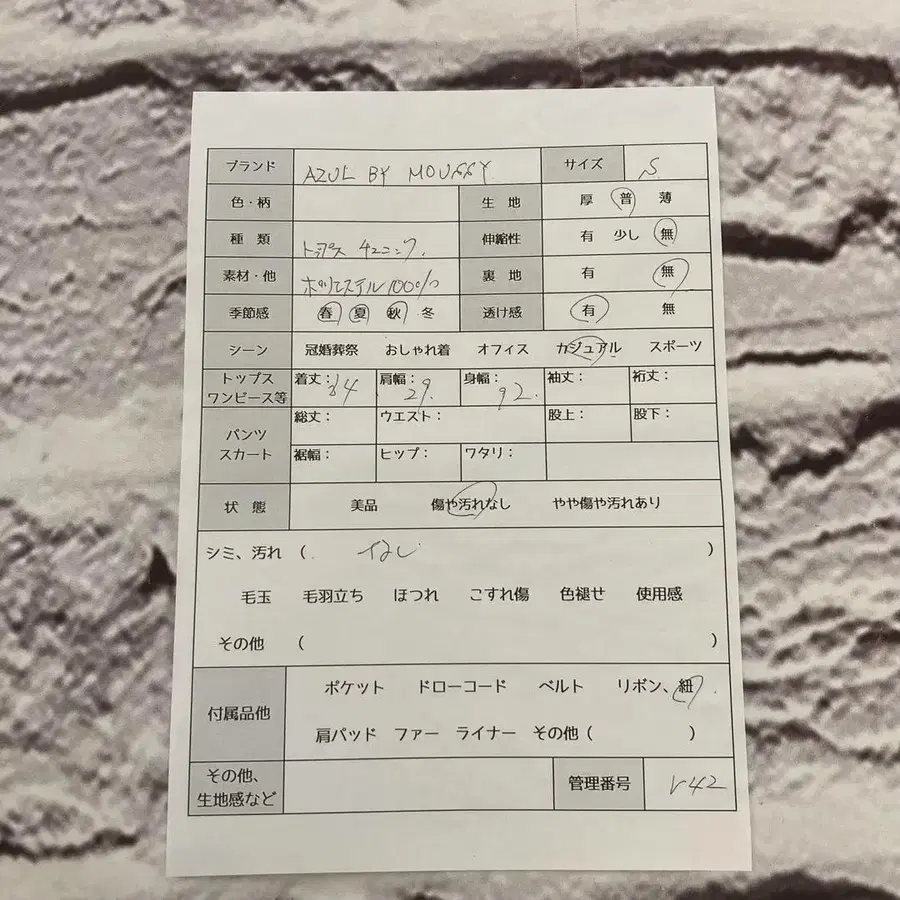 ブランド AZUL BY MOUSSY サイズ S
色・柄 生 地 厚 普 薄
種 類 トップス チュニック. 伸縮性 有 少し 無
素材・他 ポリエステル100% 裏 地 有 無
季節感 春 夏 秋 冬 透け感 有 無
シーン 冠婚葬祭 おしゃれ着 オフィス カジュアル スポーツ
トップス ワンピース等 着丈: 肩幅: 29. 身幅: 92. 袖丈: 裄丈:
パンツ スカート 総丈: ウエスト: 股上: 股下:
裾幅: ヒップ: ワタリ:
状 態 美品 傷や汚れなし やや傷や汚れあり
シミ、汚れ ( なし )
毛玉 毛羽立ち ほつれ こすれ傷 色褪せ 使用感
その他 ( )
付属品他 ポケット ドローコード ベルト リボン、紐
肩パッド ファー ライナー その他 ( )
その他、 生地感など 管理番号 r42